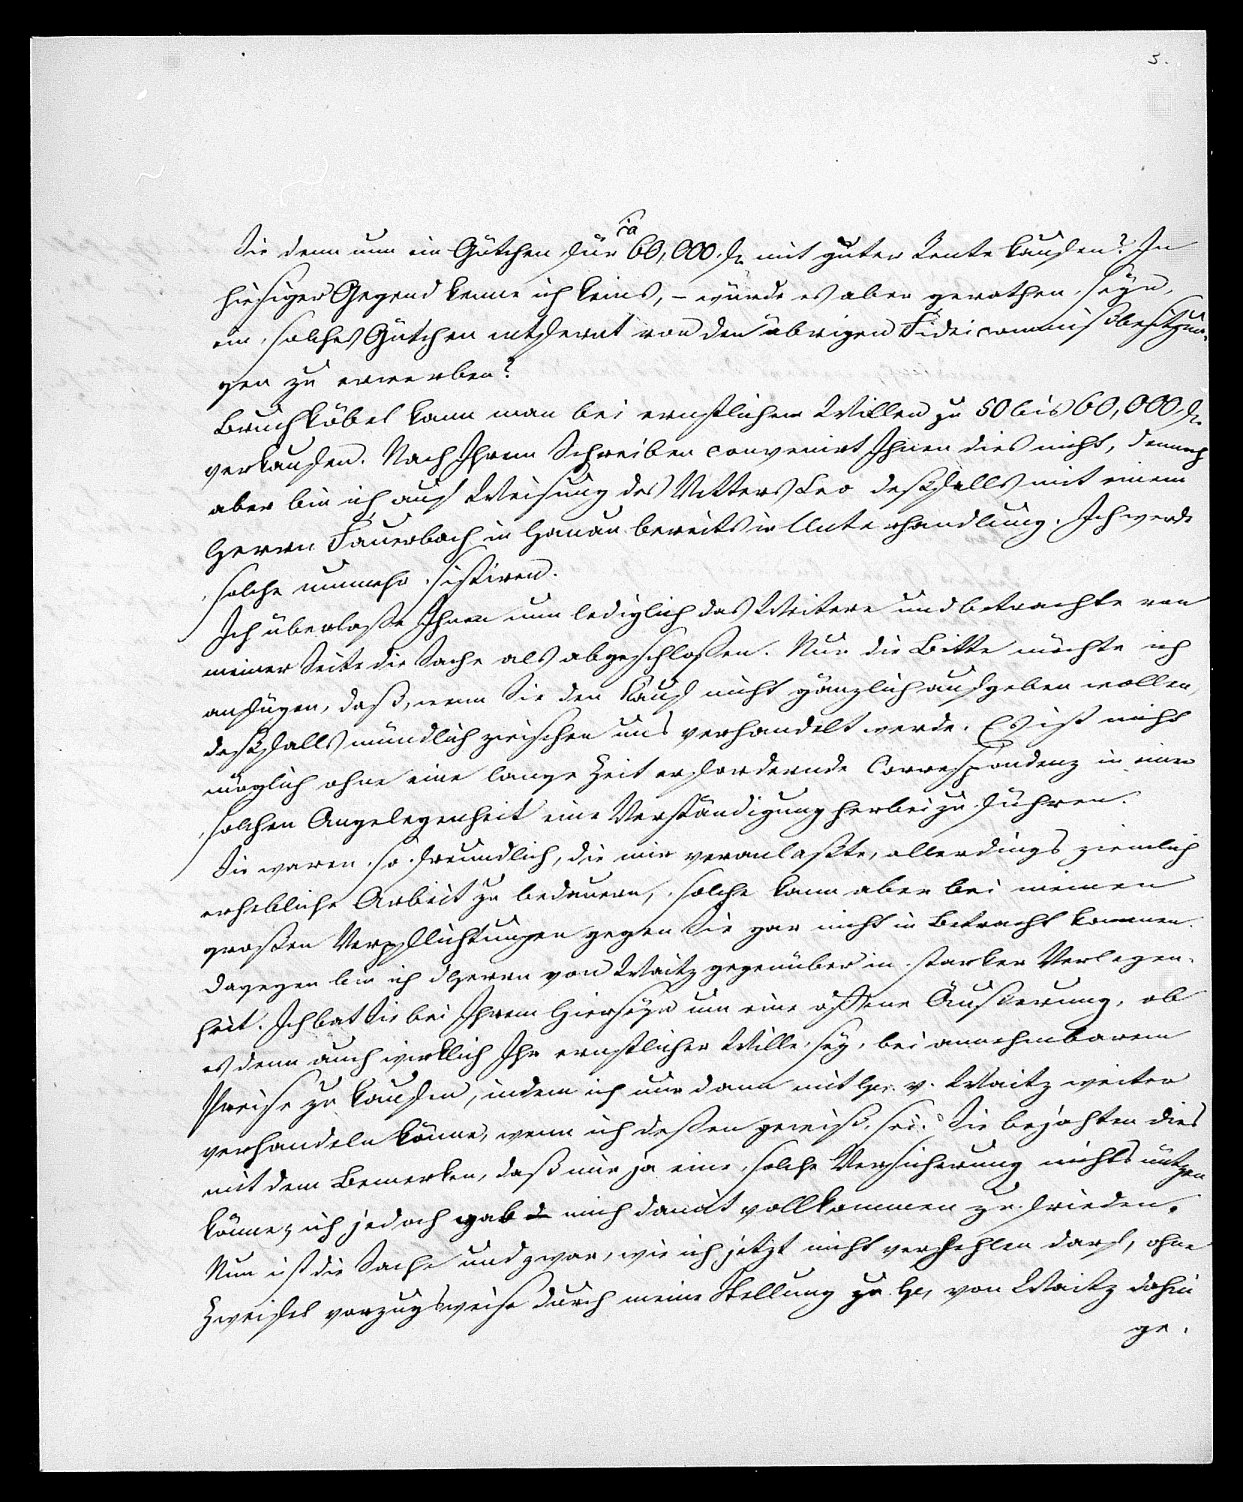 3.
ca
Sie denn nun ein Gütchen für 60,000 fl. mit guter Rente kaufen? In
hiesiger Gegend kenne ich keins, – würde es aber gerathen seyn,
ein solches Gütchen entfernt von den übrigen Fideicommißbesitzun-
gen zu erwerben?
Bruchköbel kann man bei ernstlichem Willen zu 50 bis 60,000 fl.
verkaufen. Nach Ihrem Schreiben convenirt Ihnen dies nicht, dennoch
aber bin ich auf Weisung des Vetters Leo deßfalls mit einem
Herrn Fauerbach in Hanau bereits in Unterhandlung. Ich werde
solche nunmehr sistiren.
Ich überlaße Ihnen nun lediglich das Weitere und betrachte von
meiner Seite die Sache als abgeschloßen. Nur die Bitte möchte ich
anfügen, daß, wenn Sie den Kauf nicht gänzlich aufgeben wollen,
deßfalls mündlich zwischen uns verhandelt werde. Es ist nicht
möglich ohne eine lange Zeit erfordernde Correspondenz in einer
solchen Angelegenheit eine Verständigung herbeizuführen.
Sie waren so freundlich, die mir veranlaßte, allerdings ziemlich
erhebliche Arbeit zu bedauern, solche kann aber bei meinen
großen Verpflichtungen gegen Sie gar nicht in Betracht kommen.
Dagegen bin ich Herrn von Waitz gegenüber in starker Verlegen-
heit. Ich bat Sie bei Ihrem Hierseyn um eine offene Äußerung, ob
es denn auch wirklich Ihr ernstlicher Wille sey, bei annehmbarem
Preise zu kaufen, indem ich nur dann mit Hr. v. Waitz weiter
verhandeln könne, wenn ich deßen gewiß sei. Sie bejahten dies
mit dem Bemerken, daß mir ja eine solche Versicherung nichts nützen
könne, ich jedoch gab mich damit vollkommen zufrieden.
Nun ist die Sache und zwar, wie ich jetzt nicht verhehlen darf, ohne
Zweifel vorzugsweise durch meine Stellung zu Hr. von Waitz dahin
ge.